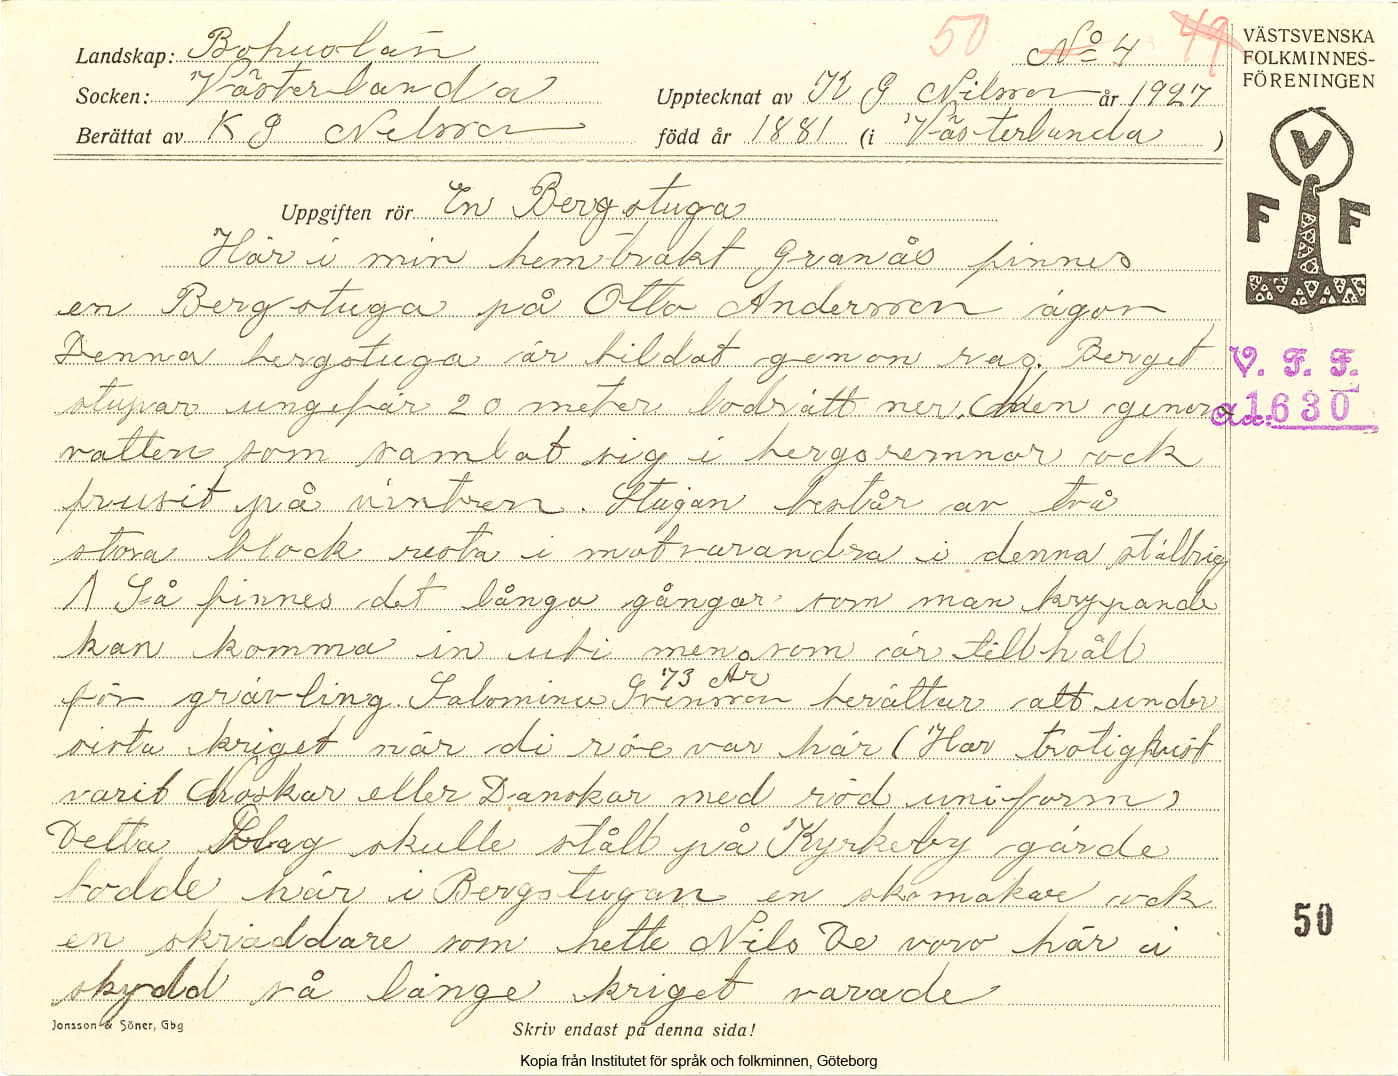 50 No 4 49
Landskap: Bohuslän
Socken: Västerlanda
Upptecknat av K G Nilsson år 1927
Berättat av K G Nilsson född år 1881 (i Västerlanda )
Uppgiften rör En Bergstuga
Här i min hemtrakt Granås finnes
en Bergstuga på Otto Andersson ägor
Denna bergstuga är bildat genon ras. Berget
stupar ungefär 20 meter lodrätt ner. Men genom
vatten som samlat sig i bergsremnor ock
frusit på vintren. Stugan består av två
stora block resta i motvarandra i denna ställnig
Λ Så finnes det långa gångar som man krypande
kan komma in uti men som är tillhåll
73 År
för grävling. Salomina Svensson berättar att under
sista kriget när di röe var här (Har troligtvist
varit Norskar eller Danskar med röd uniform)
Detta slag skulle stått på Kyrkeby gärde
bodde här i Bergstugan en skomakare ock
en skräddare som hette Nils De voro här i
skydd så länge kriget varade
Jonsson & Söner, Gbg
Skriv endast på denna sida!
Kopia från Institutet för språk och folkminnen, Göteborg
VÄSTSVENSKA
FOLKMINNES-
FÖRENINGEN
V
F F
V. F. F.
Acc: 1630
50